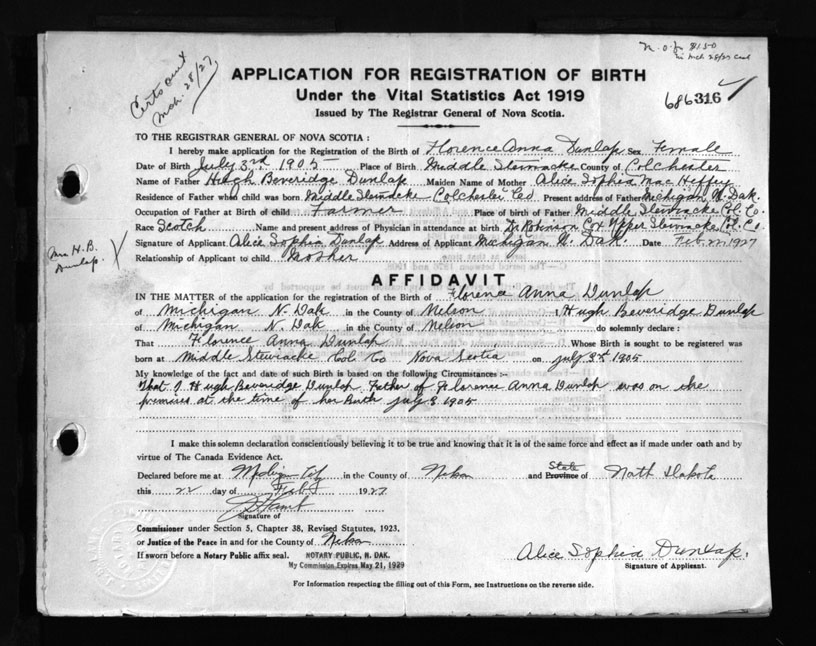 N.O.J. $1.50
Certs out
Mch. 28/27
in Mch 28/27
APPLICATION FOR REGISTRATION OF BIRTH
Under the Vital Statistics Act 1919
686316
Issued by The Registrar General of Nova Scotia.
TO THE REGISTRAR GENERAL OF NOVA SCOTIA :
I hereby make application for the Registration of the Birth of Florence Anna Dunlap Sex Female
Date of Birth July 3rd 1905 Place of Birth Middle Stewiacke County of Colchester
Name of Father Hugh Beveridge Dunlap Maiden Name of Mother Alice Sophia Mac Heffey
Residence of Father when child was born Middle Stewiacke Colchester Co Present address of Father Michigan N. Dak.
Occupation of Father at Birth of child Farmer Place of birth of Father Middle Stewiacke Col. Co.
Race Scotch Name and present address of Physician in attendance at birth Dr Robinson Cox Upper Stewiacke Col. Co.
Mrs H. B. Dunlap.
Signature of Applicant Alice Sophia Dunlap Address of Applicant Michigan N. Dak. Date Feb. 22 1927
Relationship of Applicant to child Mother
AFFIDAVIT
IN THE MATTER of the application for the registration of the Birth of Florence Anna Dunlap
of Michigan N. Dak in the County of Nelson I Hugh Beveridge Dunlap
of Michigan N. Dak in the County of Nelson do solemnly declare :
That Florence Anna Dunlap Whose Birth is sought to be registered was
born at Middle Stewiacke Col Co Nova Scotia on July 3rd 1905
My knowledge of the fact and date of such Birth is based on the following Circumstances :-
That I Hugh Beveridge Dunlop Father of Florence Anna Dunlop was on the
premises at the time of her Birth July 3 1905
I make this solemn declaration conscientiously believing it to be true and knowing that it is of the same force and effect as if made under oath and by
virtue of The Canada Evidence Act.
Declared before me at Michigan City in the County of Nelson and State Province of North Dakota
this 22 day of Feb 1927
Signature of
Commissioner under Section 5, Chapter 38, Revised Statutes, 1923.
or Justice of the Peace in and for the County of Nelson
If sworn before a Notary Public affix seal. NOTARY PUBLIC, N. DAK.
My Commission Expires May 21, 1929
Alice Sophia Dunlap.
Signature of Applicant.
For Information respecting the filling out of this Form, see Instructions on the reverse side.